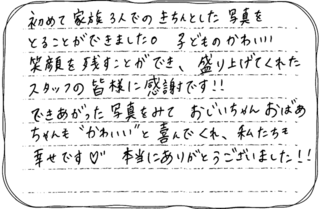 初めて家族3人でのきちんとした写真を
とることができました。 子どものかわいい
笑顔を残すことができ、盛り上げてくれた
スタッフの皆様に感謝です!!
できあがった写真をみて おじいちゃん おばあ
ちゃんも"かわいい"と喜んでくれ、私たちも
幸せです♡ 本当にありがとうございました!!